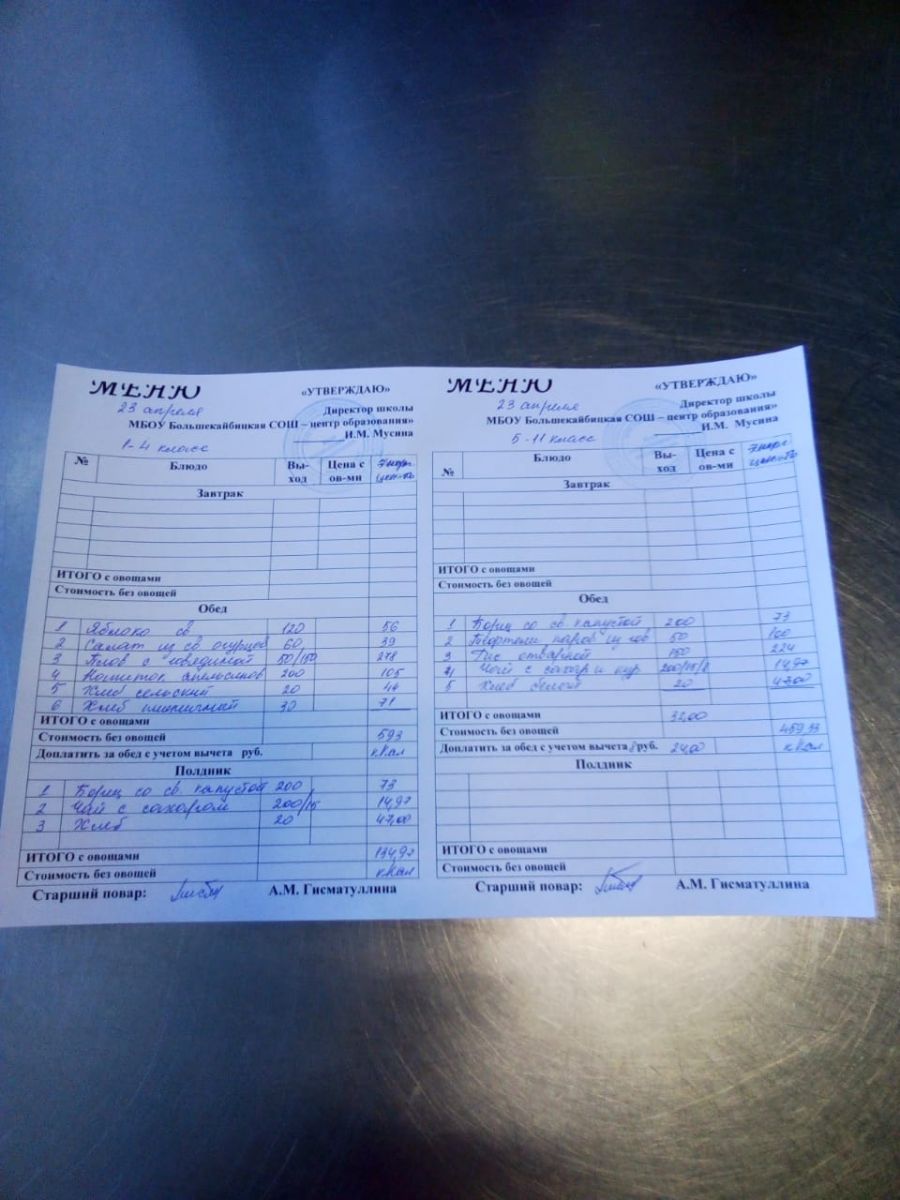 МЕНЮ «УТВЕРЖДАЮ»
23 апреля Директор школы
МБОУ Большекайбицкая СОШ – центр образования»
И.М. Мусина
1-4 класс
№ Блюдо Вы-ход Цена с ов-ми Энерг. цен-ть
Завтрак
ИТОГО с овощами
Стоимость без овощей
Обед
1 Яблоко св 120 56
2 Салат из св огурцов 60 39
3 Плов с говядиной 50/150 278
4 Напиток апельсинов 200 105
5 Хлеб сельский 20 44
6 Хлеб пшеничный 30 71
ИТОГО с овощами
Стоимость без овощей 593
Доплатить за обед с учетом вычета руб. кКал
Полдник
1 Борщ со св. капустой 200 73
2 Чай с сахаром 200/15 14,97
3 Хлеб 20 47,00
ИТОГО с овощами 134,97
Стоимость без овощей кКал
Старший повар: А.М. Гисматуллина
МЕНЮ «УТВЕРЖДАЮ»
23 апреля Директор школы
МБОУ Большекайбицкая СОШ – центр образования»
И.М. Мусина
5-11 класс
№ Блюдо Вы-ход Цена с ов-ми Энерг. цен-ть
Завтрак
ИТОГО с овощами
Стоимость без овощей
Обед
1 Борщ со св. капустой 200 73
2 паров из гов 50 100
3 Рис отварной 150 224
4 Чай с сахар и 14,97
5 Хлеб белый 20 47,00
ИТОГО с овощами 32,00
Стоимость без овощей 459,33
Доплатить за обед с учетом вычета 8 руб. 24,00 кКал
Полдник
ИТОГО с овощами
Стоимость без овощей
Старший повар: А.М. Гисматуллина